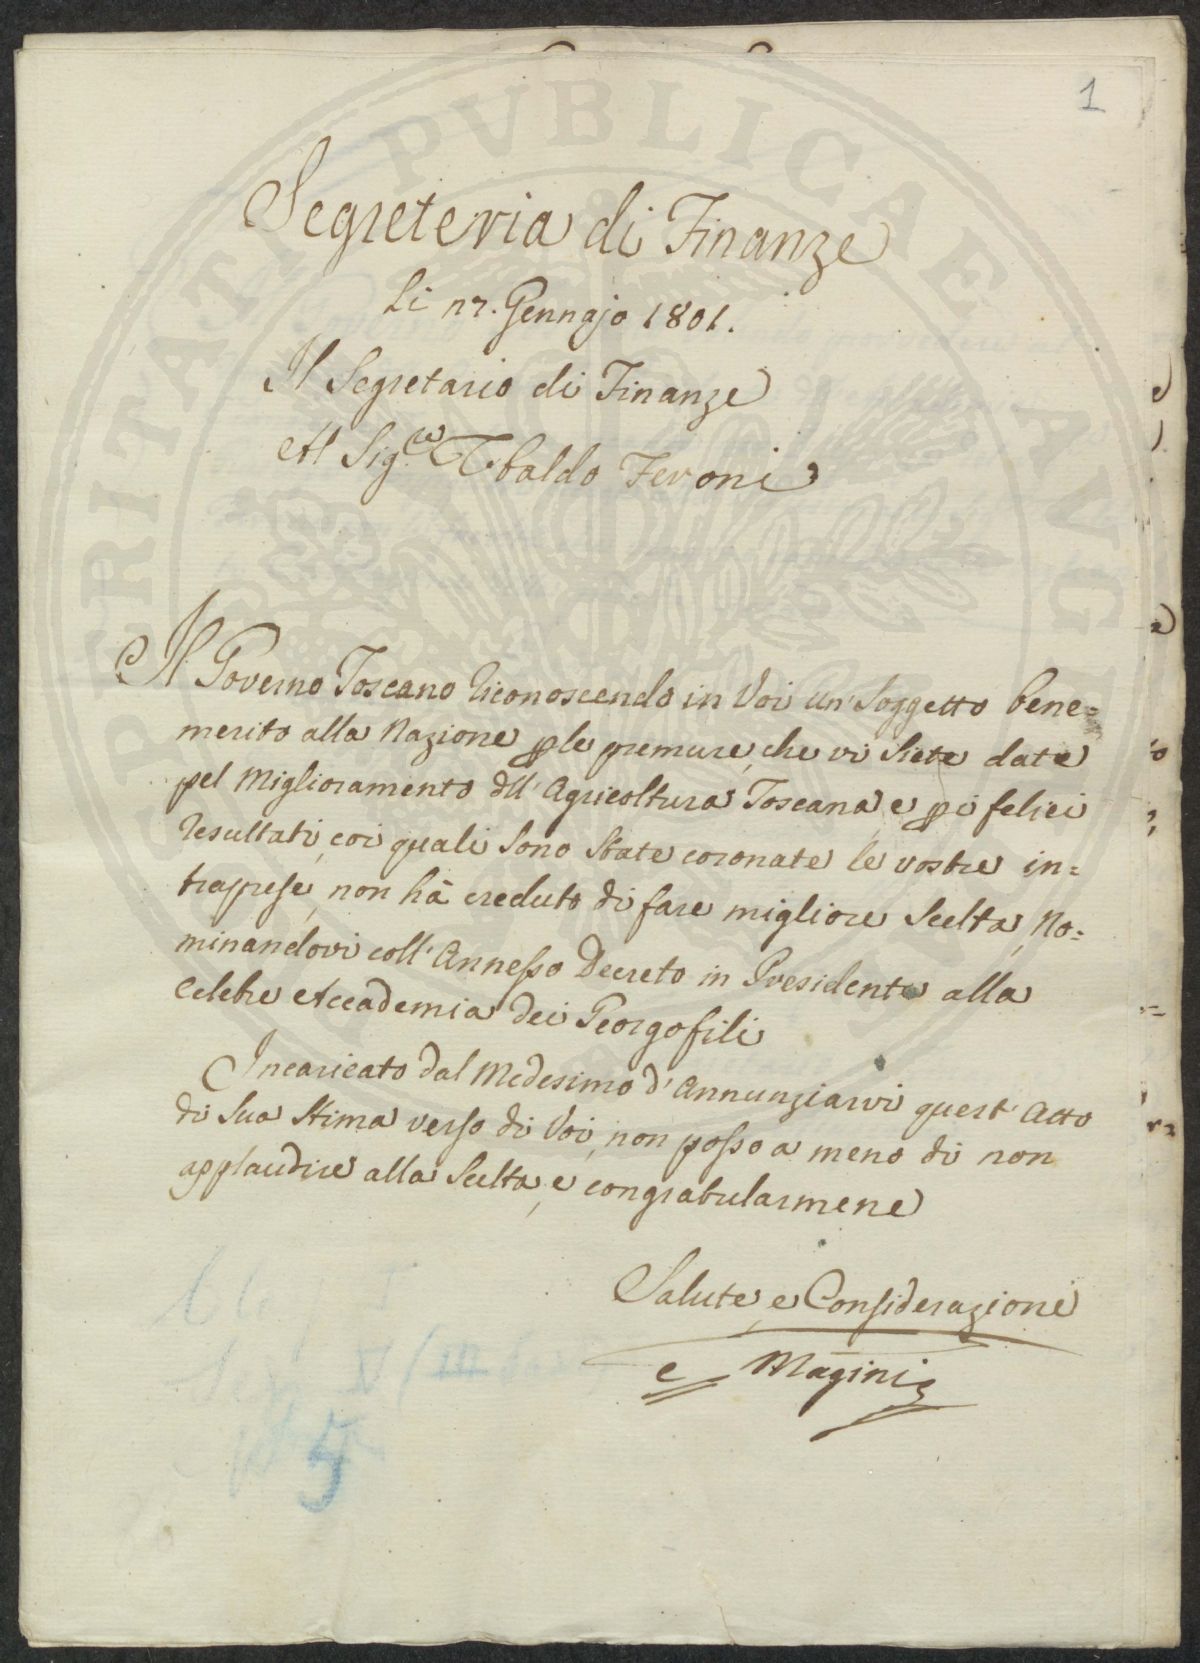 1
Segreteria di Finanze
Li 17. Gennajo 1801.
Il Segretario di Finanze
Al Sig.re Ubaldo Feroni
Il Governo Toscano riconoscendo in Voi un' Soggetto bene=
merito alla Nazione ple premure, che vi siete date
pel Miglioramento dll' Agricoltura Toscana, e pi felici
resultati, coi quali sono state coronate le vostre in=
traprese, non hà creduto di fare migliore Scelta, No=
minandovi coll' Annesso Decreto in Presidente alla
Celebre Accademia dei Georgofili
Incaricato dal Medesimo d' Annunziarvi quest' Atto
di Sua Stima verso di Voi, non posso a meno di non
applaudire alla Scelta, e congratularmene
Salute, e Considerazione
Magini
5
PROSPERITATI PVBLICAE AVG